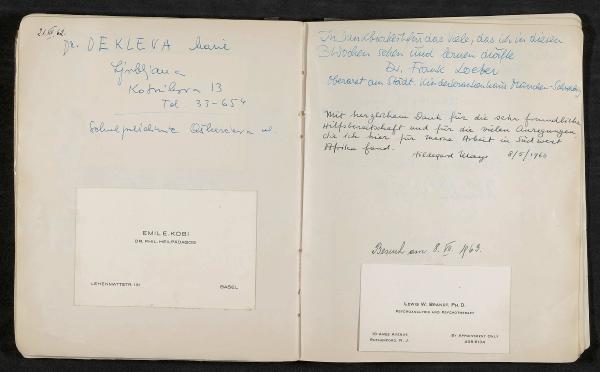 21.VI.62.
Dr. DEKLEVA Marie
Ljubljana
Kotnikova 13
Tel 33-654
EMILE. KOBI
DR. PHIL. HEILPÄDAGOGE
LEHENMATTSTR. 191 BASEL
In Dankbarkeit für das viele, das ich in diesen
3 Wochen sehen und lernen dürfte
Dr. Frank Loeber
Oberarzt am Städt. Kinderkrankenhaus München-Schwabing
Mit herzlichem Dank für die sehr freundliche
Hilfsbereitschaft und für die vielen Anregungen
die ich hier für meine Arbeit in Südwest
Afrika fand.
Hildegard 8/5/1963
Besuch am 8. VII. 1963.
LEWIS W. BRANDT, PH. D.
PSYCHOANALYSIS AND PSYCHOTHERAPY
10 AMES AVENUE BY APPOINTMENT ONLY
RUTHERFORD, N. J. 438-5134